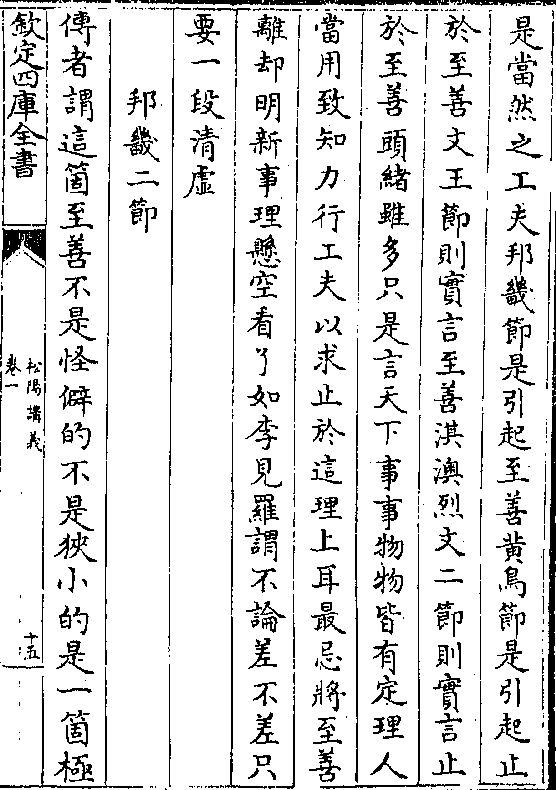 是當然之工夫邦畿節是引起至善黃鳥節是引起止
於至善文王節則實言至善淇澳烈文二節則實言止
於至善頭緒雖多只是言天下事事物物皆有定理人
當用致知力行工夫以求止於這理上耳最忌將至善
離却明新事理懸空看了如李見羅謂不論差不差只
要一段清虛
邦畿二節
傳者謂這箇至善不是怪僻的不是狹小的是一箇極
欽定四庫全書
松陽講義
卷一
十五